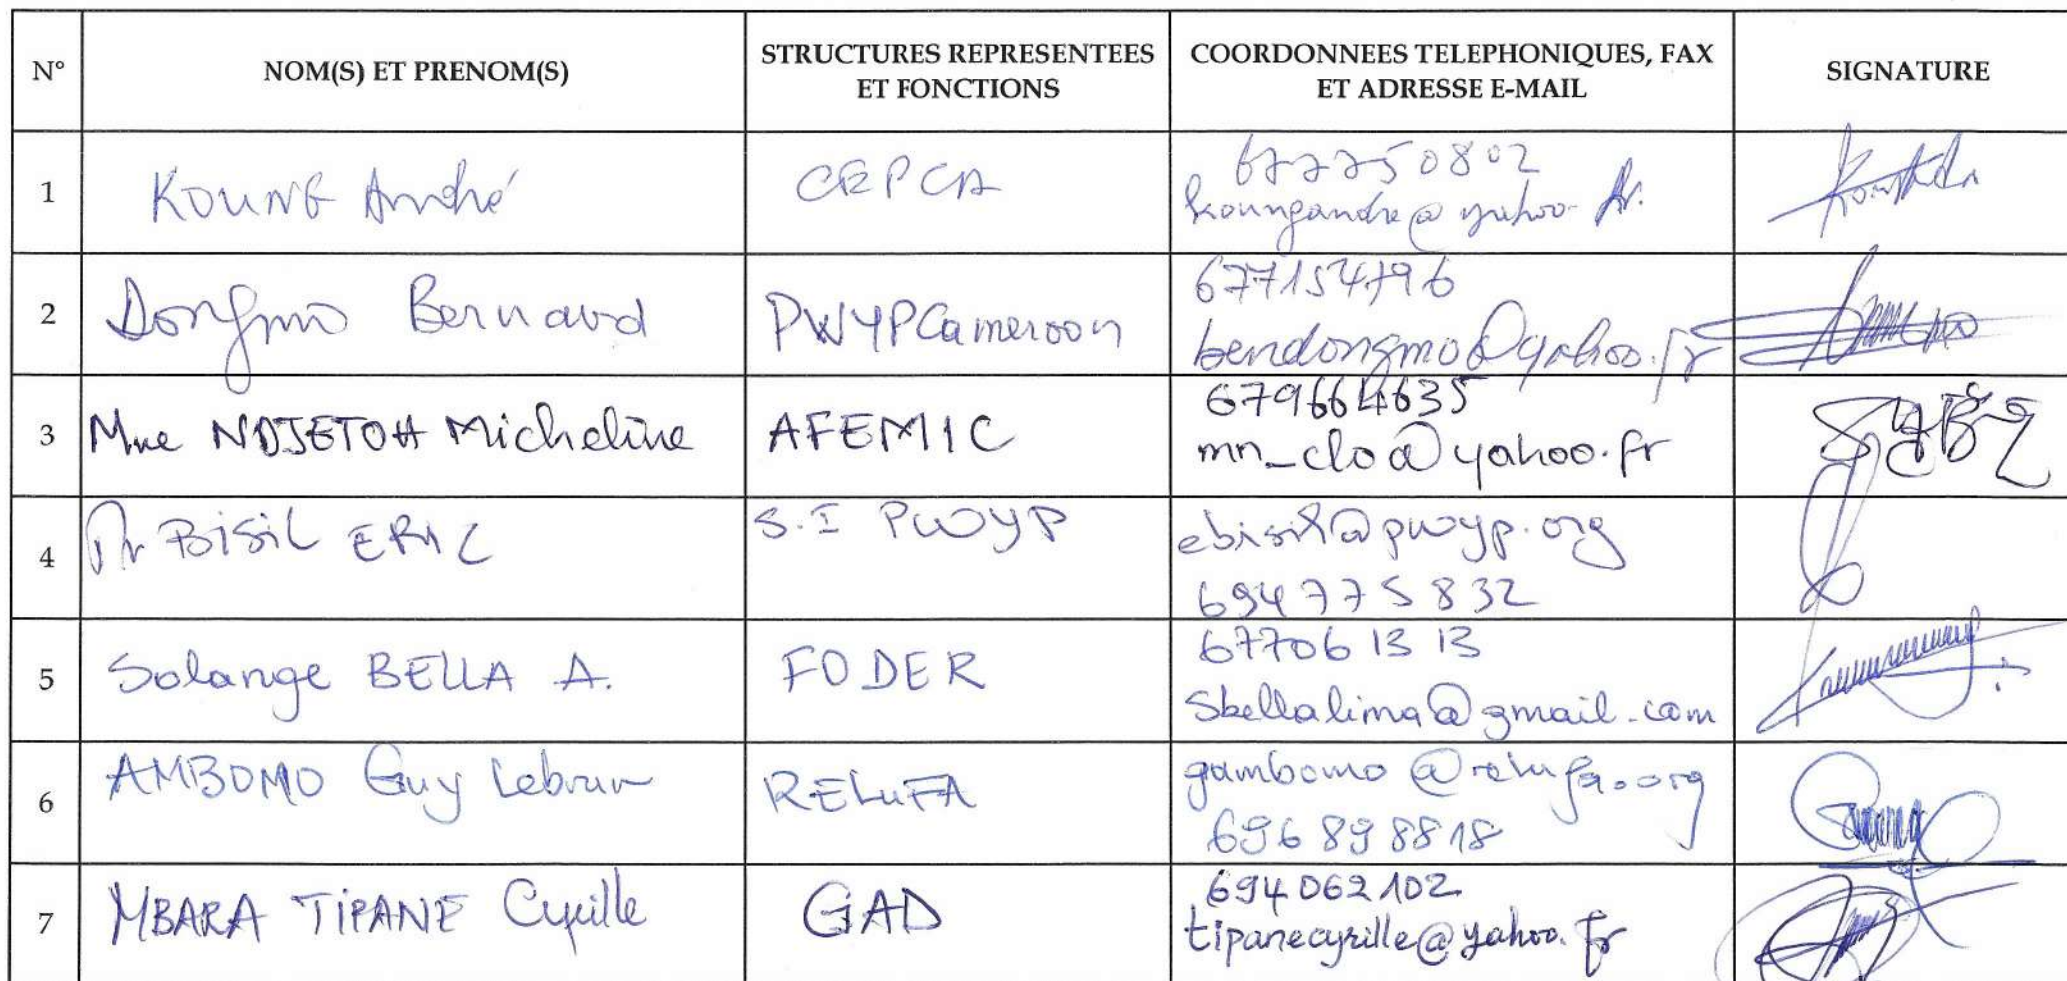 N° NOM(S) ET PRENOM(S) STRUCTURES REPRESENTEES ET FONCTIONS COORDONNEES TELEPHONIQUES, FAX ET ADRESSE E-MAIL SIGNATURE
1 KOUNG André CEPCA 677750802
koungandre@yahoo.fr.
2 Dongmo Bernard PWYPCameroon 677154796
bendongmo@yahoo.fr
3 Mme NDJETOH Micheline AFEMIC 679664635
mn_clo@yahoo.fr
4 Mr BISIL ERIC S.I PWYP ebisil@pwyp.org
694775832
5 Solange BELLA A. FODER 67706 13 13
Sbellalima@gmail.com
6 AMBOMO Guy Lebrun RELUFA gambomo@relufa.org
696 89 88 18
7 MBARA TIPANE Cyrille GAD 694062102
tipanecyrille@yahoo.fr